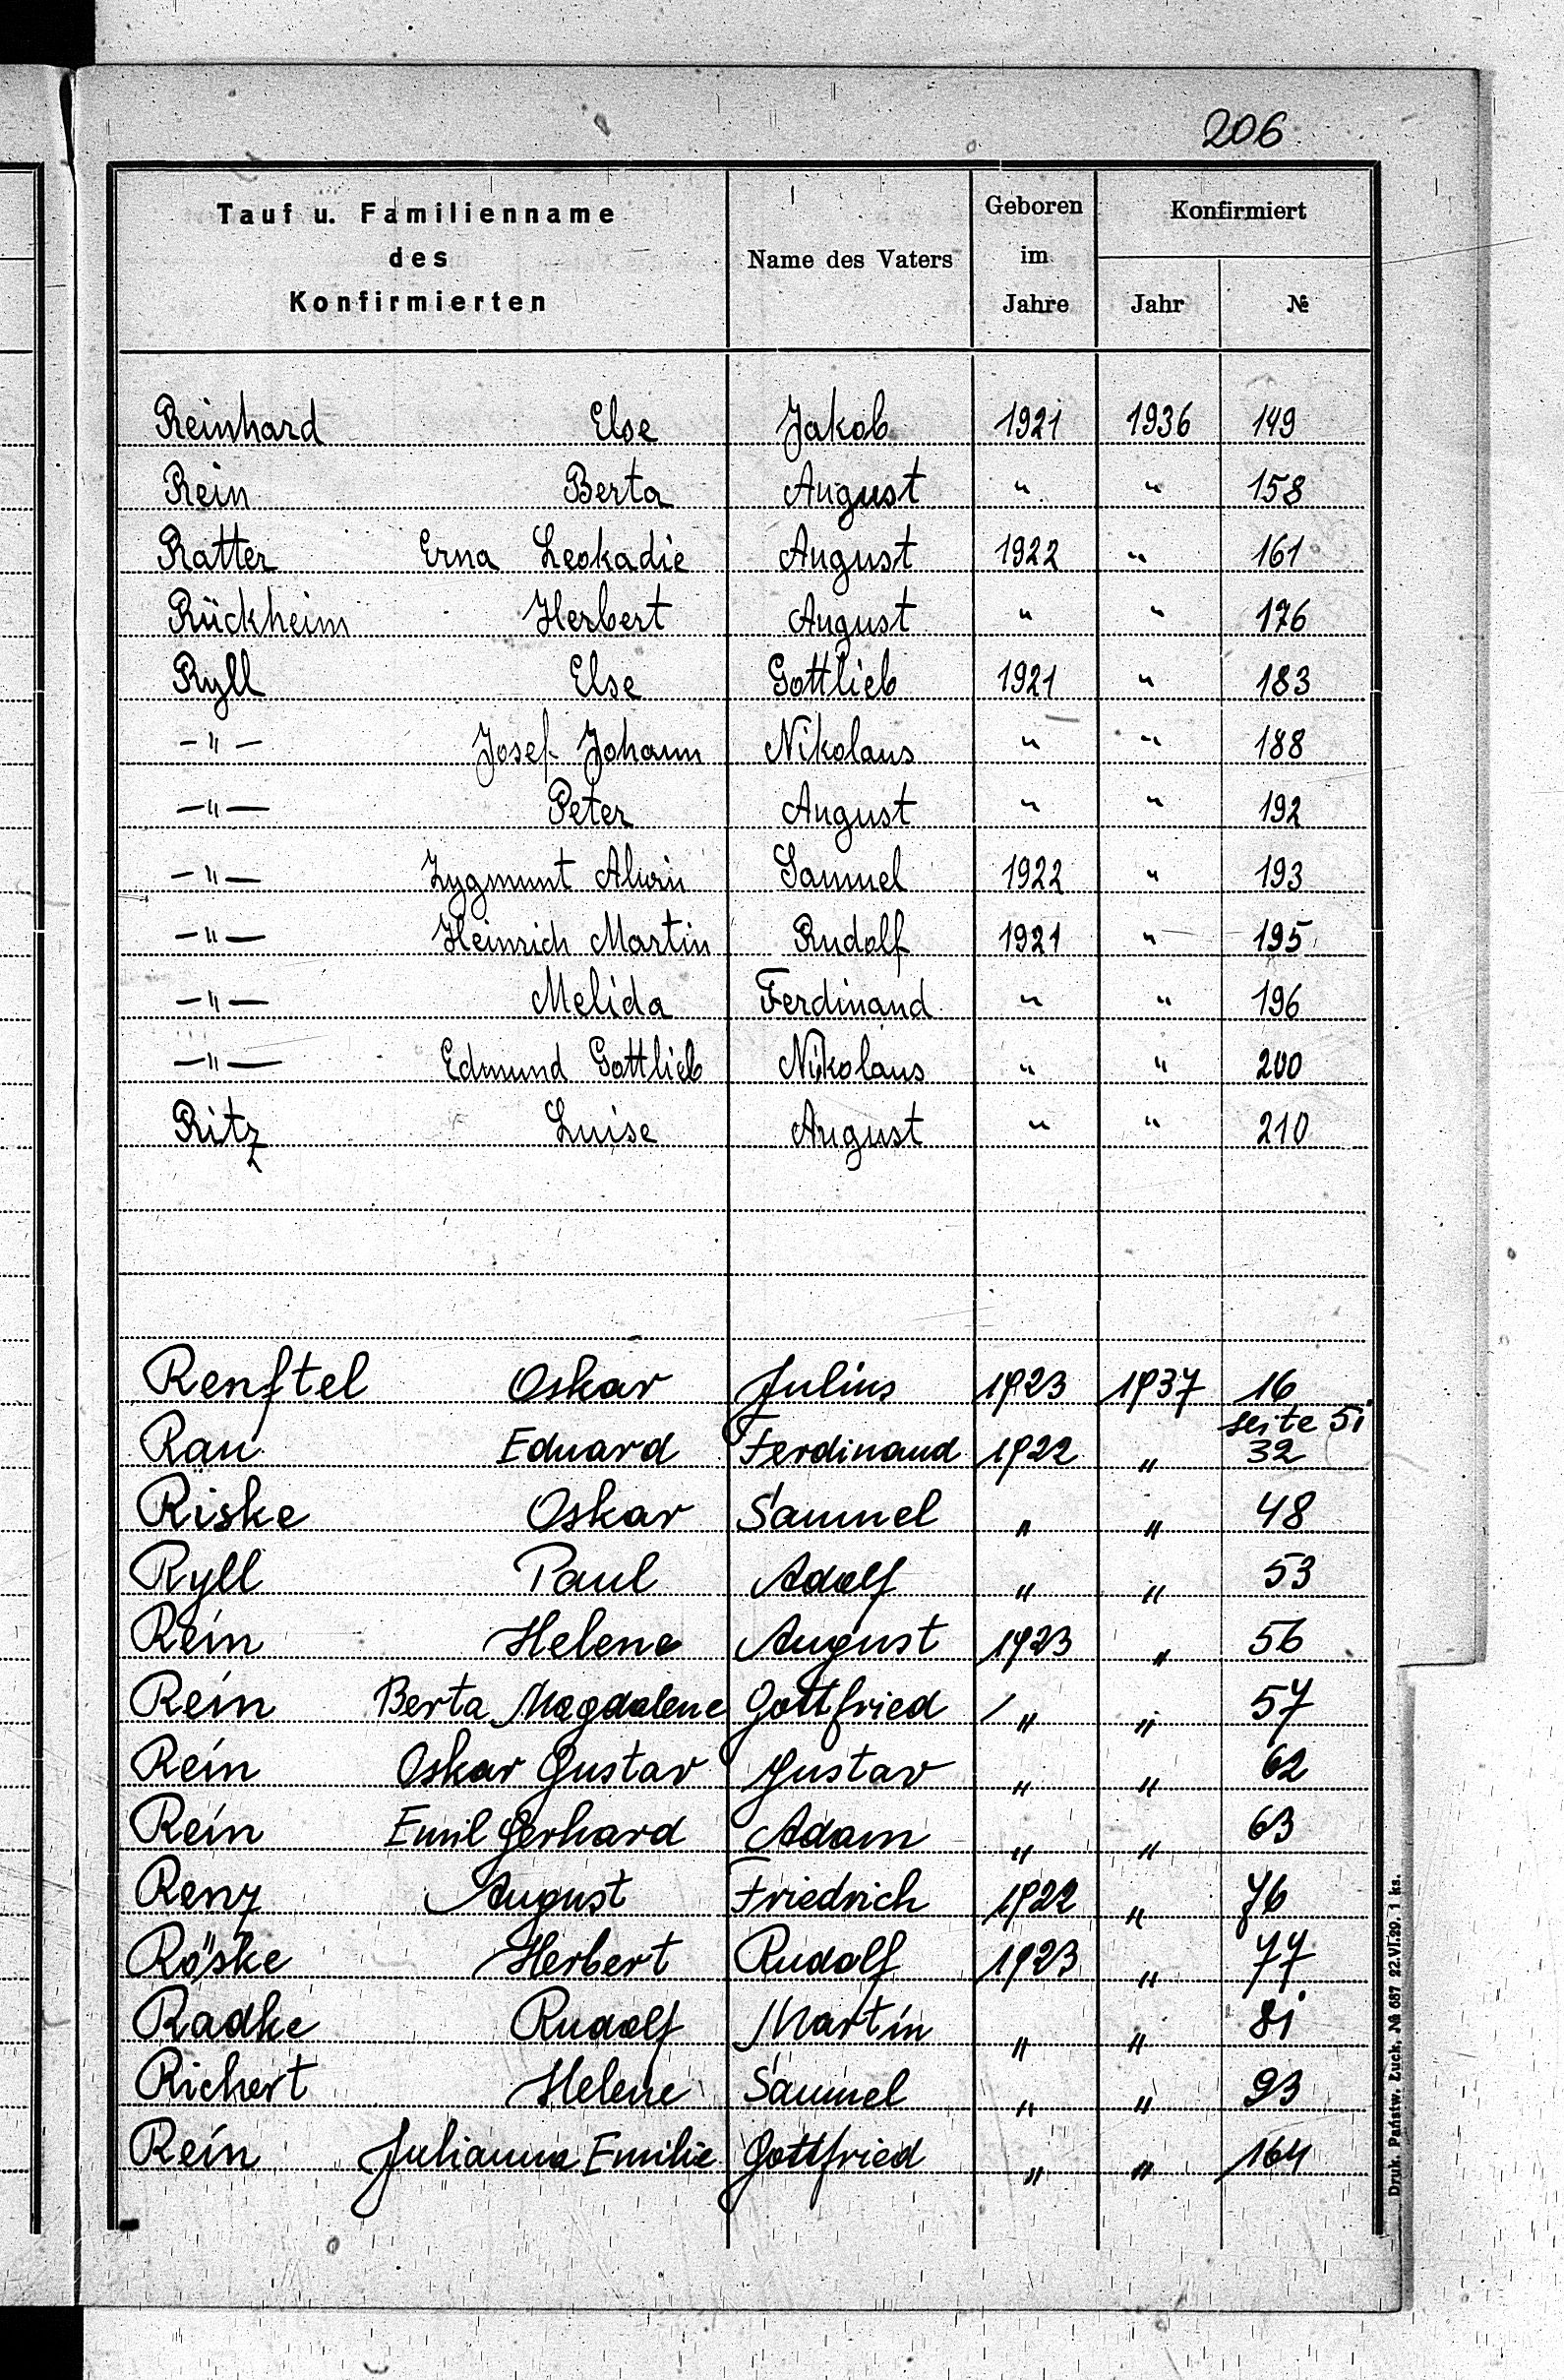 206
Tauf u. Familienname des Konfirmierten | Name des Vaters | Geboren im Jahre | Konfirmiert Jahr | №
Reinhard Else Jakob 1921 1936 149
Rein Berta August " " 158
Ratter Erna Leokadie August 1922 " 161
Rückheim Herbert August " " 176
Ryll Else Gottlieb 1921 " 183
-"- Josef Johann Nikolaus " " 188
-"- Peter August " " 192
-"- Zygmunt Alwin Samuel 1922 " 193
-"- Heinrich Martin Rudolf 1921 " 195
-"- Melida Ferdinand " " 196
-"- Edmund Gottlieb Nikolaus " " 200
Ritz Luise August " " 210
Renftel Oskar Julius 1923 1937 16
seite 51
Rau Eduard Ferdinand 1922 " 32
Riske Oskar Samuel " " 48
Ryll Paul Adolf " " 53
Rein Helene August 1923 " 56
Rein Berta Magdalene Gottfried " " 57
Rein Oskar Gustav Gustav " " 62
Rein Emil Gerhard Adam " " 63
Renz August Friedrich 1922 " 76
Röske Herbert Rudolf 1923 " 77
Radke Rudolf Martin " " 81
Richert Helene Samuel " " 93
Rein Julianna Emilie Gottfried " " 164
Druk. Państw. Łuck. № 687 22.VI.29. 1 ks.